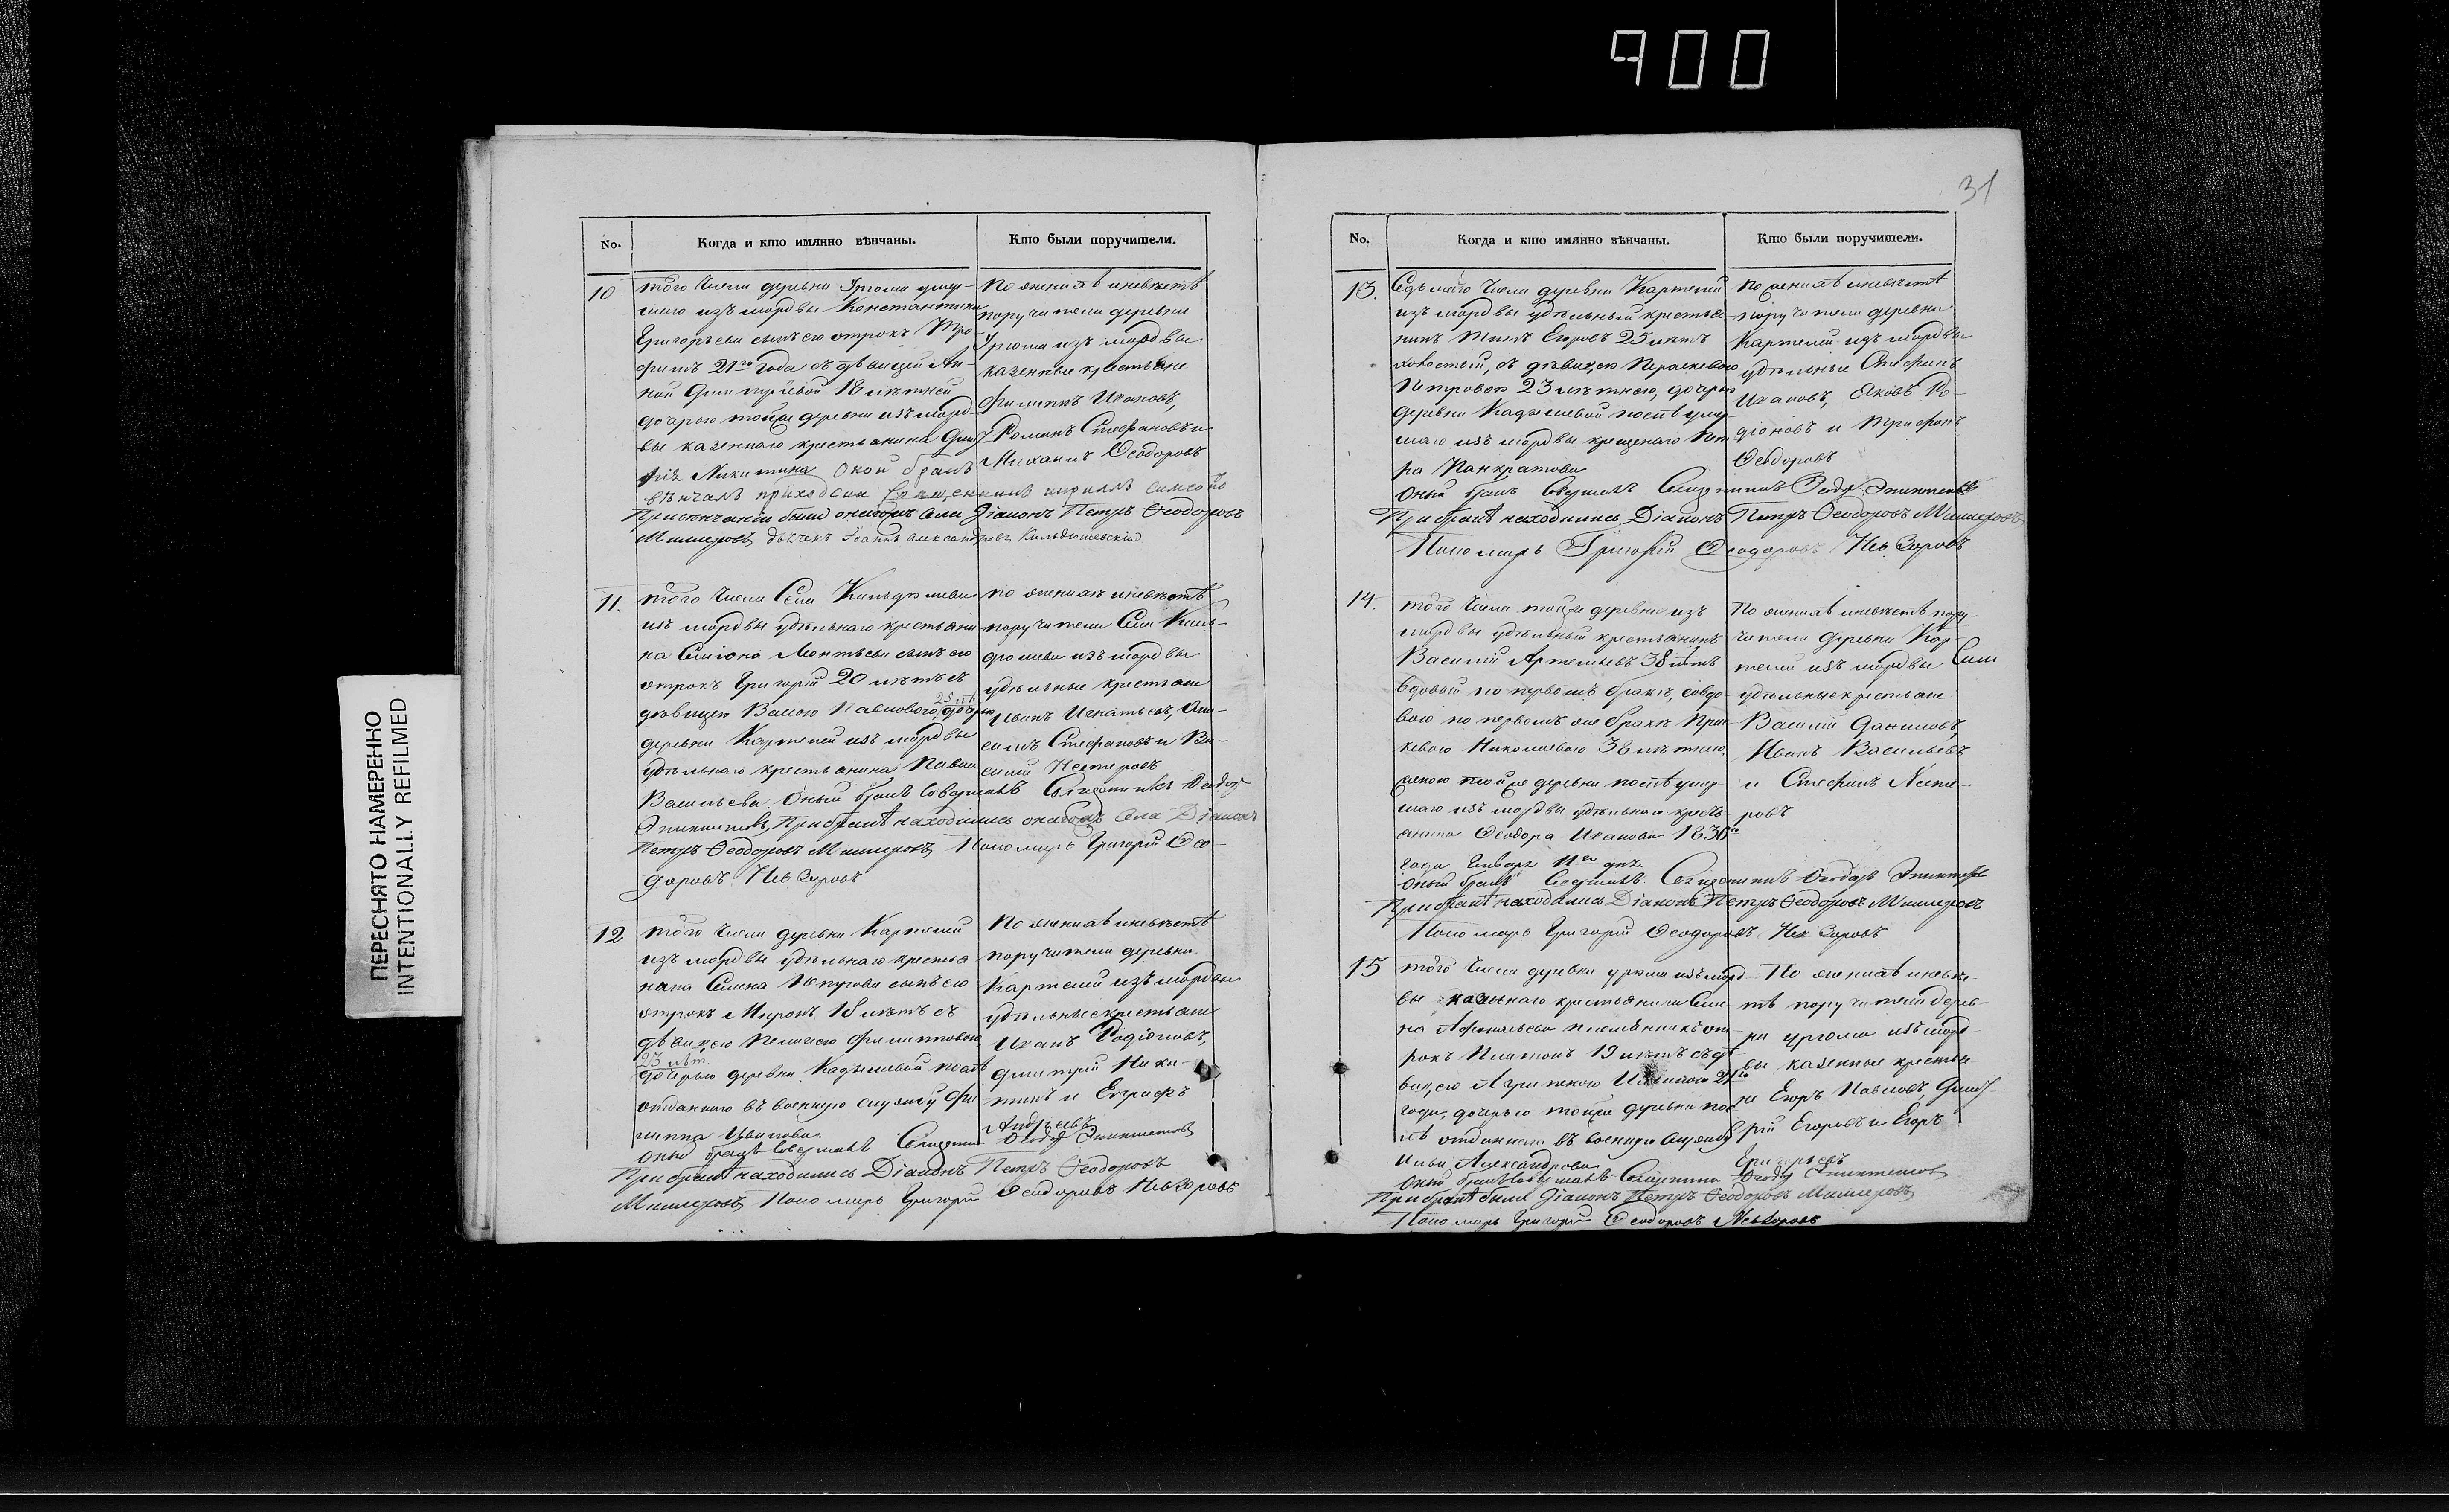 900
31
ПЕРЕСНЯТО НАМЕРЕННО
INTENTIONALLY REFILMED
No. Когда и кто имянно вѣнчаны. Кто были поручишели.
10
того числа деревни
шаго изъ мордвы Константина
Григорьева сынъ его отрокъ Тро-
фимъ 21го года съ дѣвицей Ан-
ной 18 лѣтней
дочерью тойже деревни изъ морд-
вы казеннаго крестьянина
Никитина Оной бракъ
вѣнчалъ
были Діаконъ Петръ Ѳеодоровъ
Миллеровъ
По женихѣ и невѣстѣ
поручители деревни
изъ мордвы
казенные крестьяне
Филиппъ Ивановъ,
Романъ Стефановъ и
Михаилъ Ѳеодоровъ
11.
того числа Села
изъ мордвы удѣльнаго крестьяни-
на сынъ его
отрокъ Григорій 20 лѣтъ съ
25 лѣт
дѣвицею Павловою, дочерью
деревни Картлей изъ мордвы
удѣльнаго крестьянина Павла
Васильева. Оный бракъ совершалъ Священникъ Ѳеодоръ
При бракѣ находились онагожъ Села Діаконъ
Петръ Ѳеодоровъ Миллеровъ Пономарь Григорій Ѳео-
доровъ Невзоровъ
по женихѣ и невѣстѣ
поручители Села
изъ мордвы
удѣльные крестьяне
Иванъ Игнатьевъ,
Стефановъ и Ва-
силій Нестеровъ
12
того числа деревни Картлей
изъ мордвы удѣльнаго крестья-
нина Петрова сынъ его
отрокъ Миронъ 18 лѣтъ съ
дѣвицею Пелагеею Филипповою
23 лѣт.
дочерью деревни Кадышевой
отданнаго въ военную службу Фи-
липпа Иванова.
Оный бракъ совершалъ Священникъ Ѳеодоръ
При бракѣ находились Діаконъ Петръ Ѳеодоровъ
Миллеровъ Пономарь Григорій Ѳеодоровъ Невзоровъ
По женихѣ и невѣстѣ
поручители деревни
Картлей изъ мордвы
удѣльные крестьяне
Иванъ Родіоновъ,
Дмитрій Ники-
тинъ и Евграфъ
Андреевъ
No. Когда и кто имянно вѣнчаны. Кто были поручишели.
13.
Седьмаго числа деревни Картлей
изъ мордвы удѣльный крестья-
нинъ Титъ Егоровъ 25 лѣтъ
холостый, съ дѣвицею Параскевою
Петровою 23 лѣтнею, дочерью
деревни Кадышевой послѣ умер-
шаго изъ мордвы крещенаго Пет-
ра Панкратова
Оный бракъ совершалъ Священникъ Ѳеодоръ
При бракѣ находились Діаконъ Петръ Ѳеодоровъ Миллеровъ
Пономарь Григорій Ѳеодоровъ Невзоровъ
По женихѣ и невѣстѣ
поручители деревни
Картлей изъ мордвы
удѣльные Стефанъ
Ивановъ, Яковъ Ро-
діоновъ и Трифонъ
Ѳеодоровъ
14.
того числа тойже деревни изъ
мордвы удѣльный крестьянинъ
Василій Артемьевъ 38 лѣтъ
вдовый по первомъ бракѣ, со вдо-
вою по первомъ же бракѣ
Николаевою 38 лѣтнею
женою тойже деревни послѣ умер-
шаго изъ мордвы удѣльнаго кресть-
янина Ѳеодора Иванова 1836го
года Января 11го дня.
Оный бракъ совершалъ Священникъ Ѳеодоръ
При бракѣ находились Діаконъ Петръ Ѳеодоровъ Миллеровъ
Пономарь Григорій Ѳеодоровъ Невзоровъ
По женихѣ и невѣстѣ пору-
чители деревни Кар-
тлей изъ мордвы
удѣльные крестьяне
Василій Даниловъ,
Иванъ Васильевъ
и Стефанъ
15
того числа деревни изъ морд-
вы казеннаго крестьянина
Афанасьева племянникъ от-
рокъ Платонъ 19 лѣтъ съ дѣ-
вицею Агрипеною 21го
года, дочерью тойже деревни пос-
лѣ отданнаго въ военную службу
Ильи Александрова
Оный бракъ совершалъ Священникъ Ѳеодоръ
При бракѣ были Діаконъ Петръ Ѳеодоровъ Миллеровъ
Пономарь Григорій Ѳеодоровъ Невзоровъ
По женихѣ и невѣс-
тѣ поручители дерев-
ни изъ морд-
вы казенные крестья-
не Егоръ Павловъ, Дмит-
рій Егоровъ и Егоръ
Григорьевъ